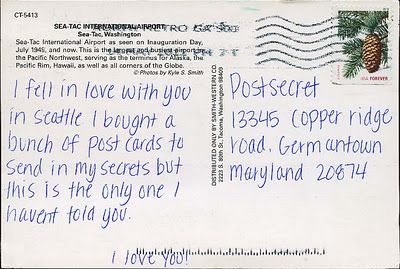 CT-5413
SEA-TAC INTERNATIONAL AIRPORT
Sea-Tac, Washington
Sea-Tac International Airport as seen on Inauguration Day,
July 1945, and now. This is the largest and busiest airport in
the Pacific Northwest, serving as the terminus for Alaska, the
Pacific Rim, Hawaii, as well as all corners of the Globe.
© Photos by Kyle S. Smith
I fell in love with you
in seattle I bought a
bunch of post cards to
send in my secrets but
this is the only one I
havent told you.
I love you!
DISTRIBUTED ONLY BY SMITH-WESTERN CO.
2223 S. 80th St., Tacoma, Washington 98409
USA FOREVER
Postsecret
13345 Copper ridge
road, Germantown
maryland 20874